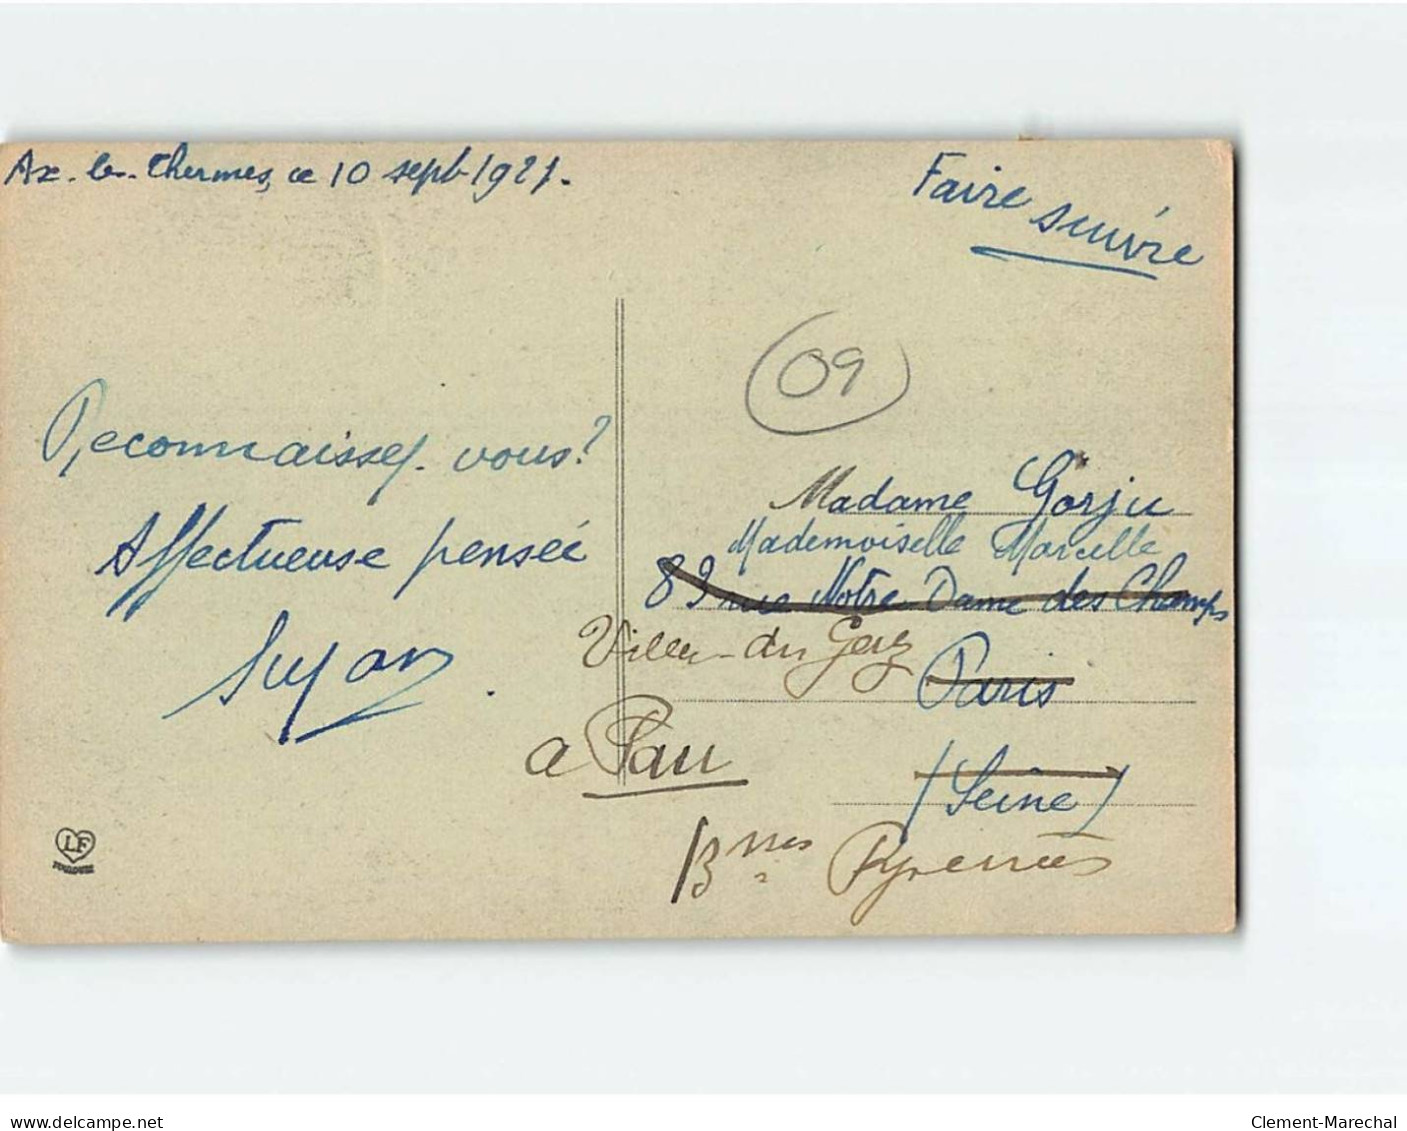 Ax-les-Thermes, ce 10 sept 1921.
Faire suivre
09
Reconnaissez-vous?
Affectueuse pensée
Suzan
Madame Gorju
Mademoiselle Marcelle
83 rue Notre Dame des Champs
Paris
(Seine)
Villa du
a Pau
Bsses Pyrenées
LF
TOULOUSE
delcampe.net
Clement-Marechal